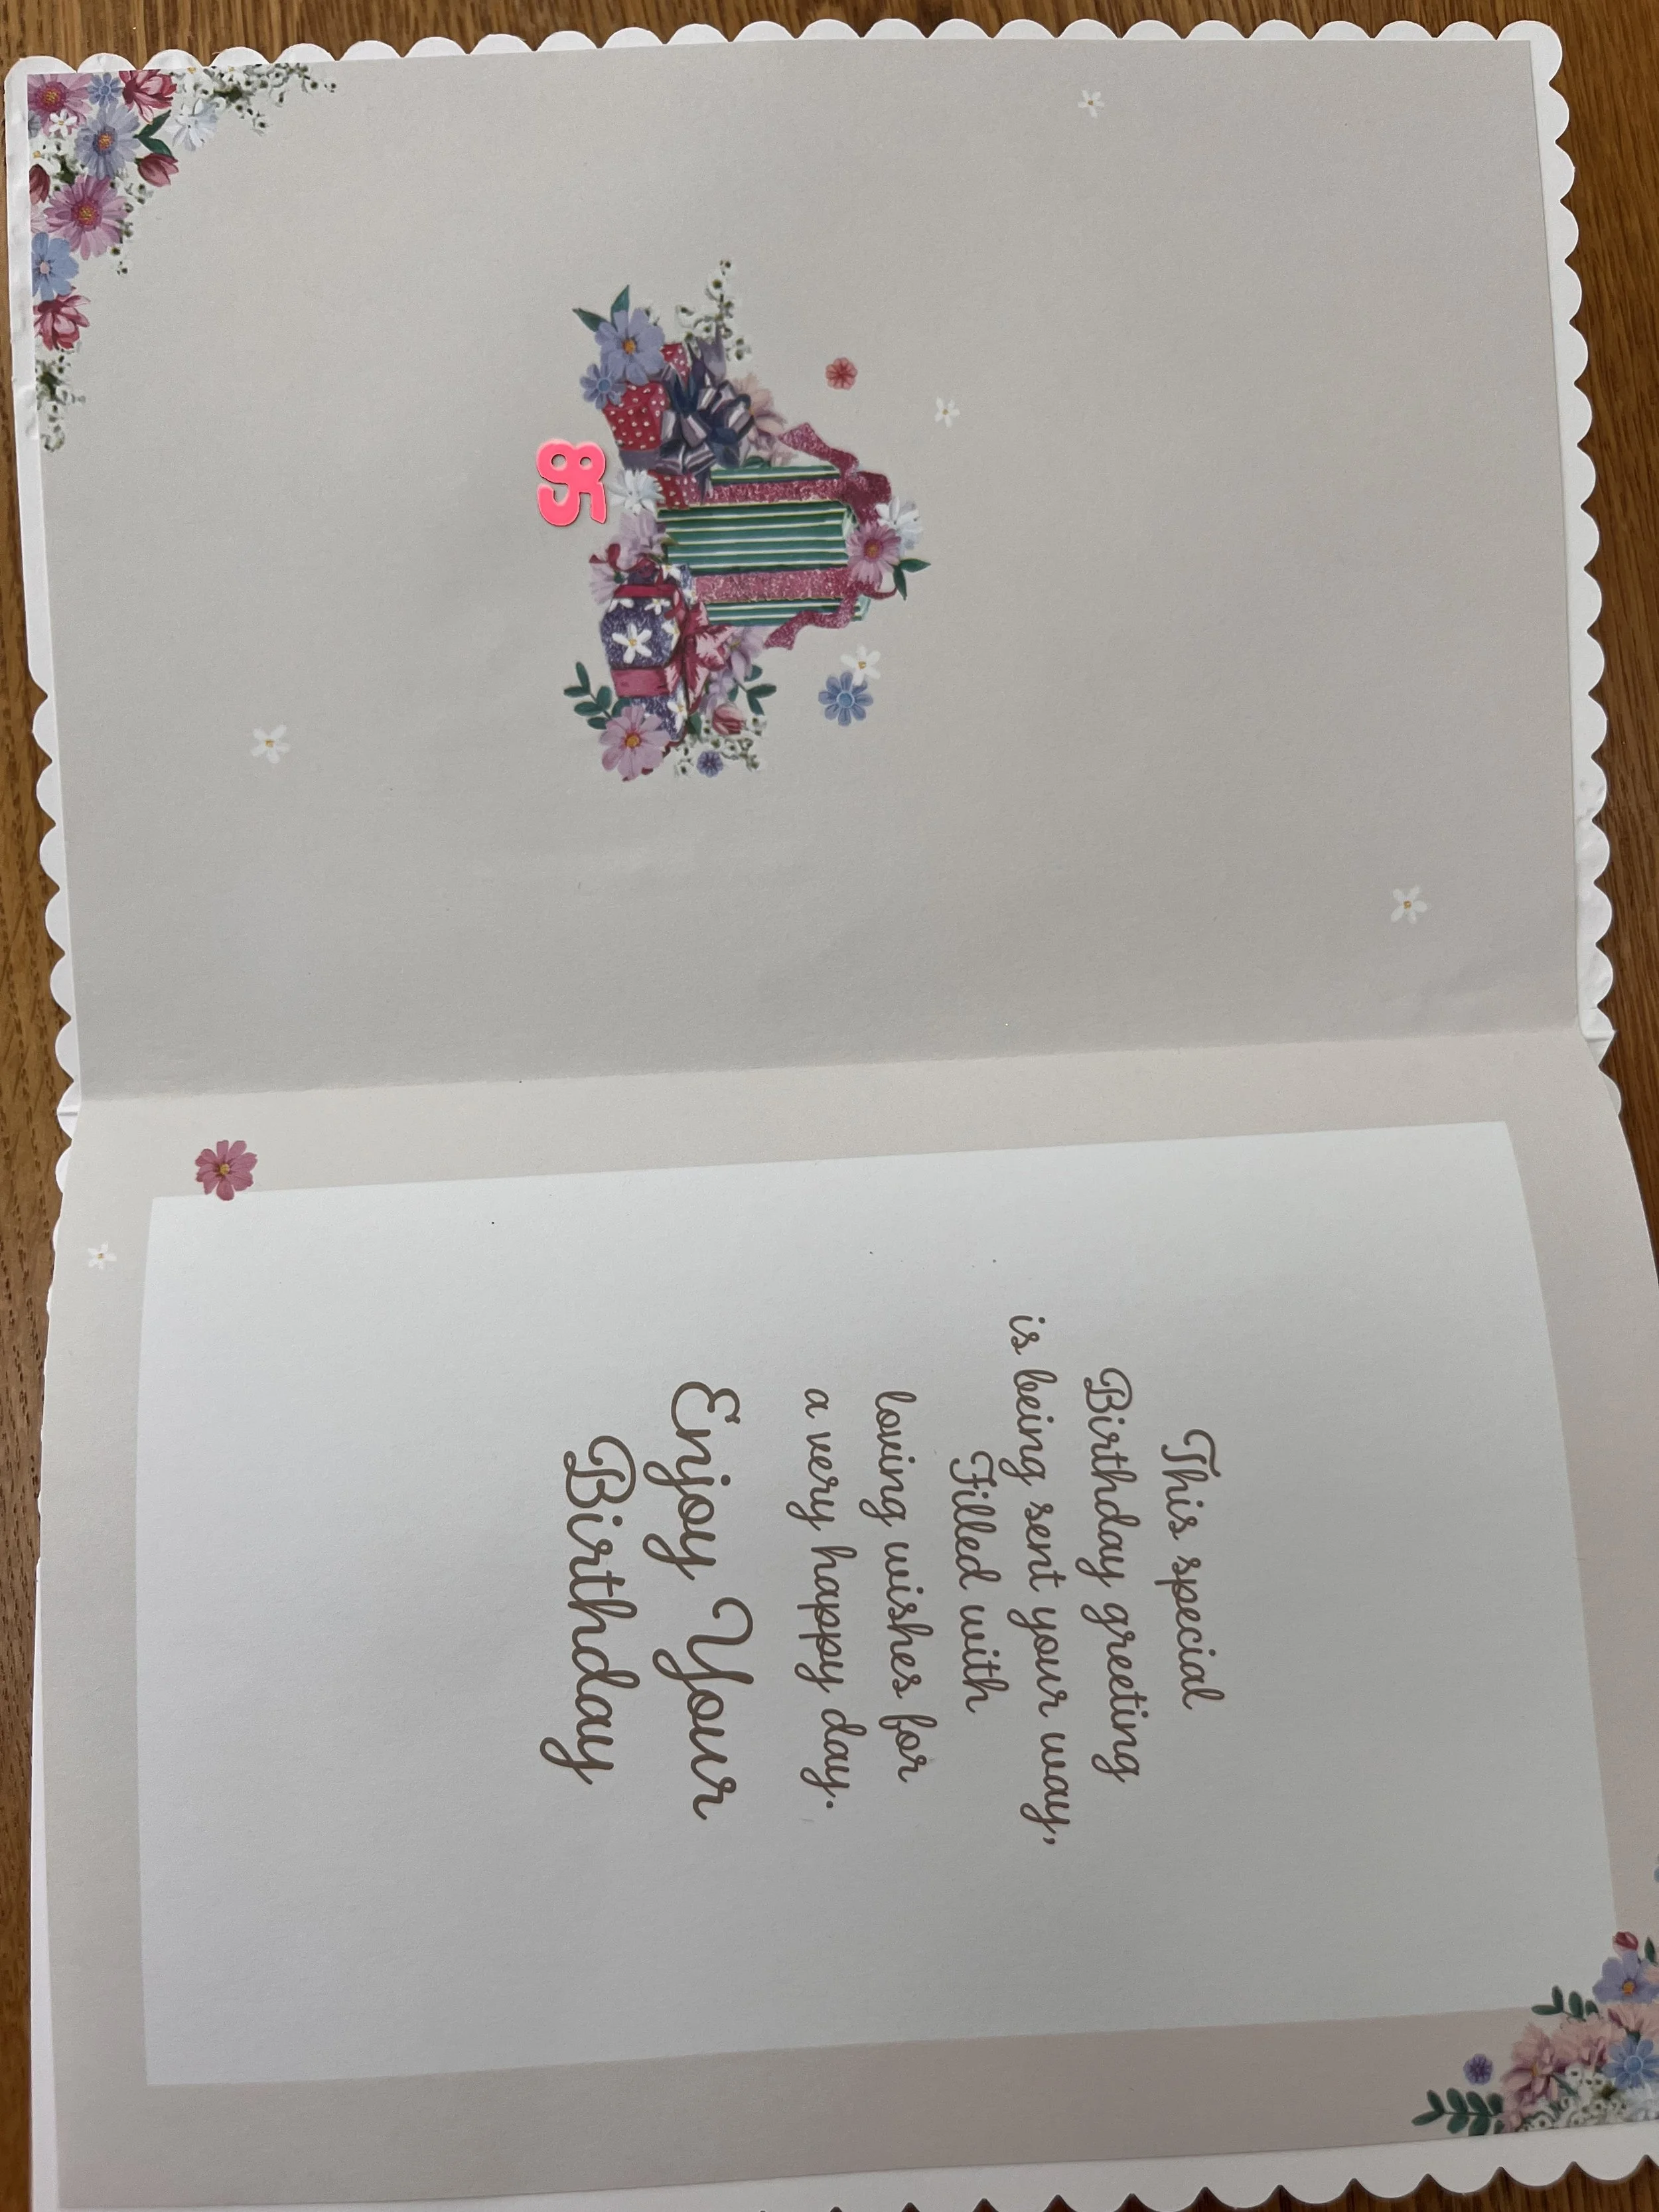 85
This special
Birthday greeting
is being sent your way,
Filled with
loving wishes for
a very happy day.
Enjoy Your
Birthday